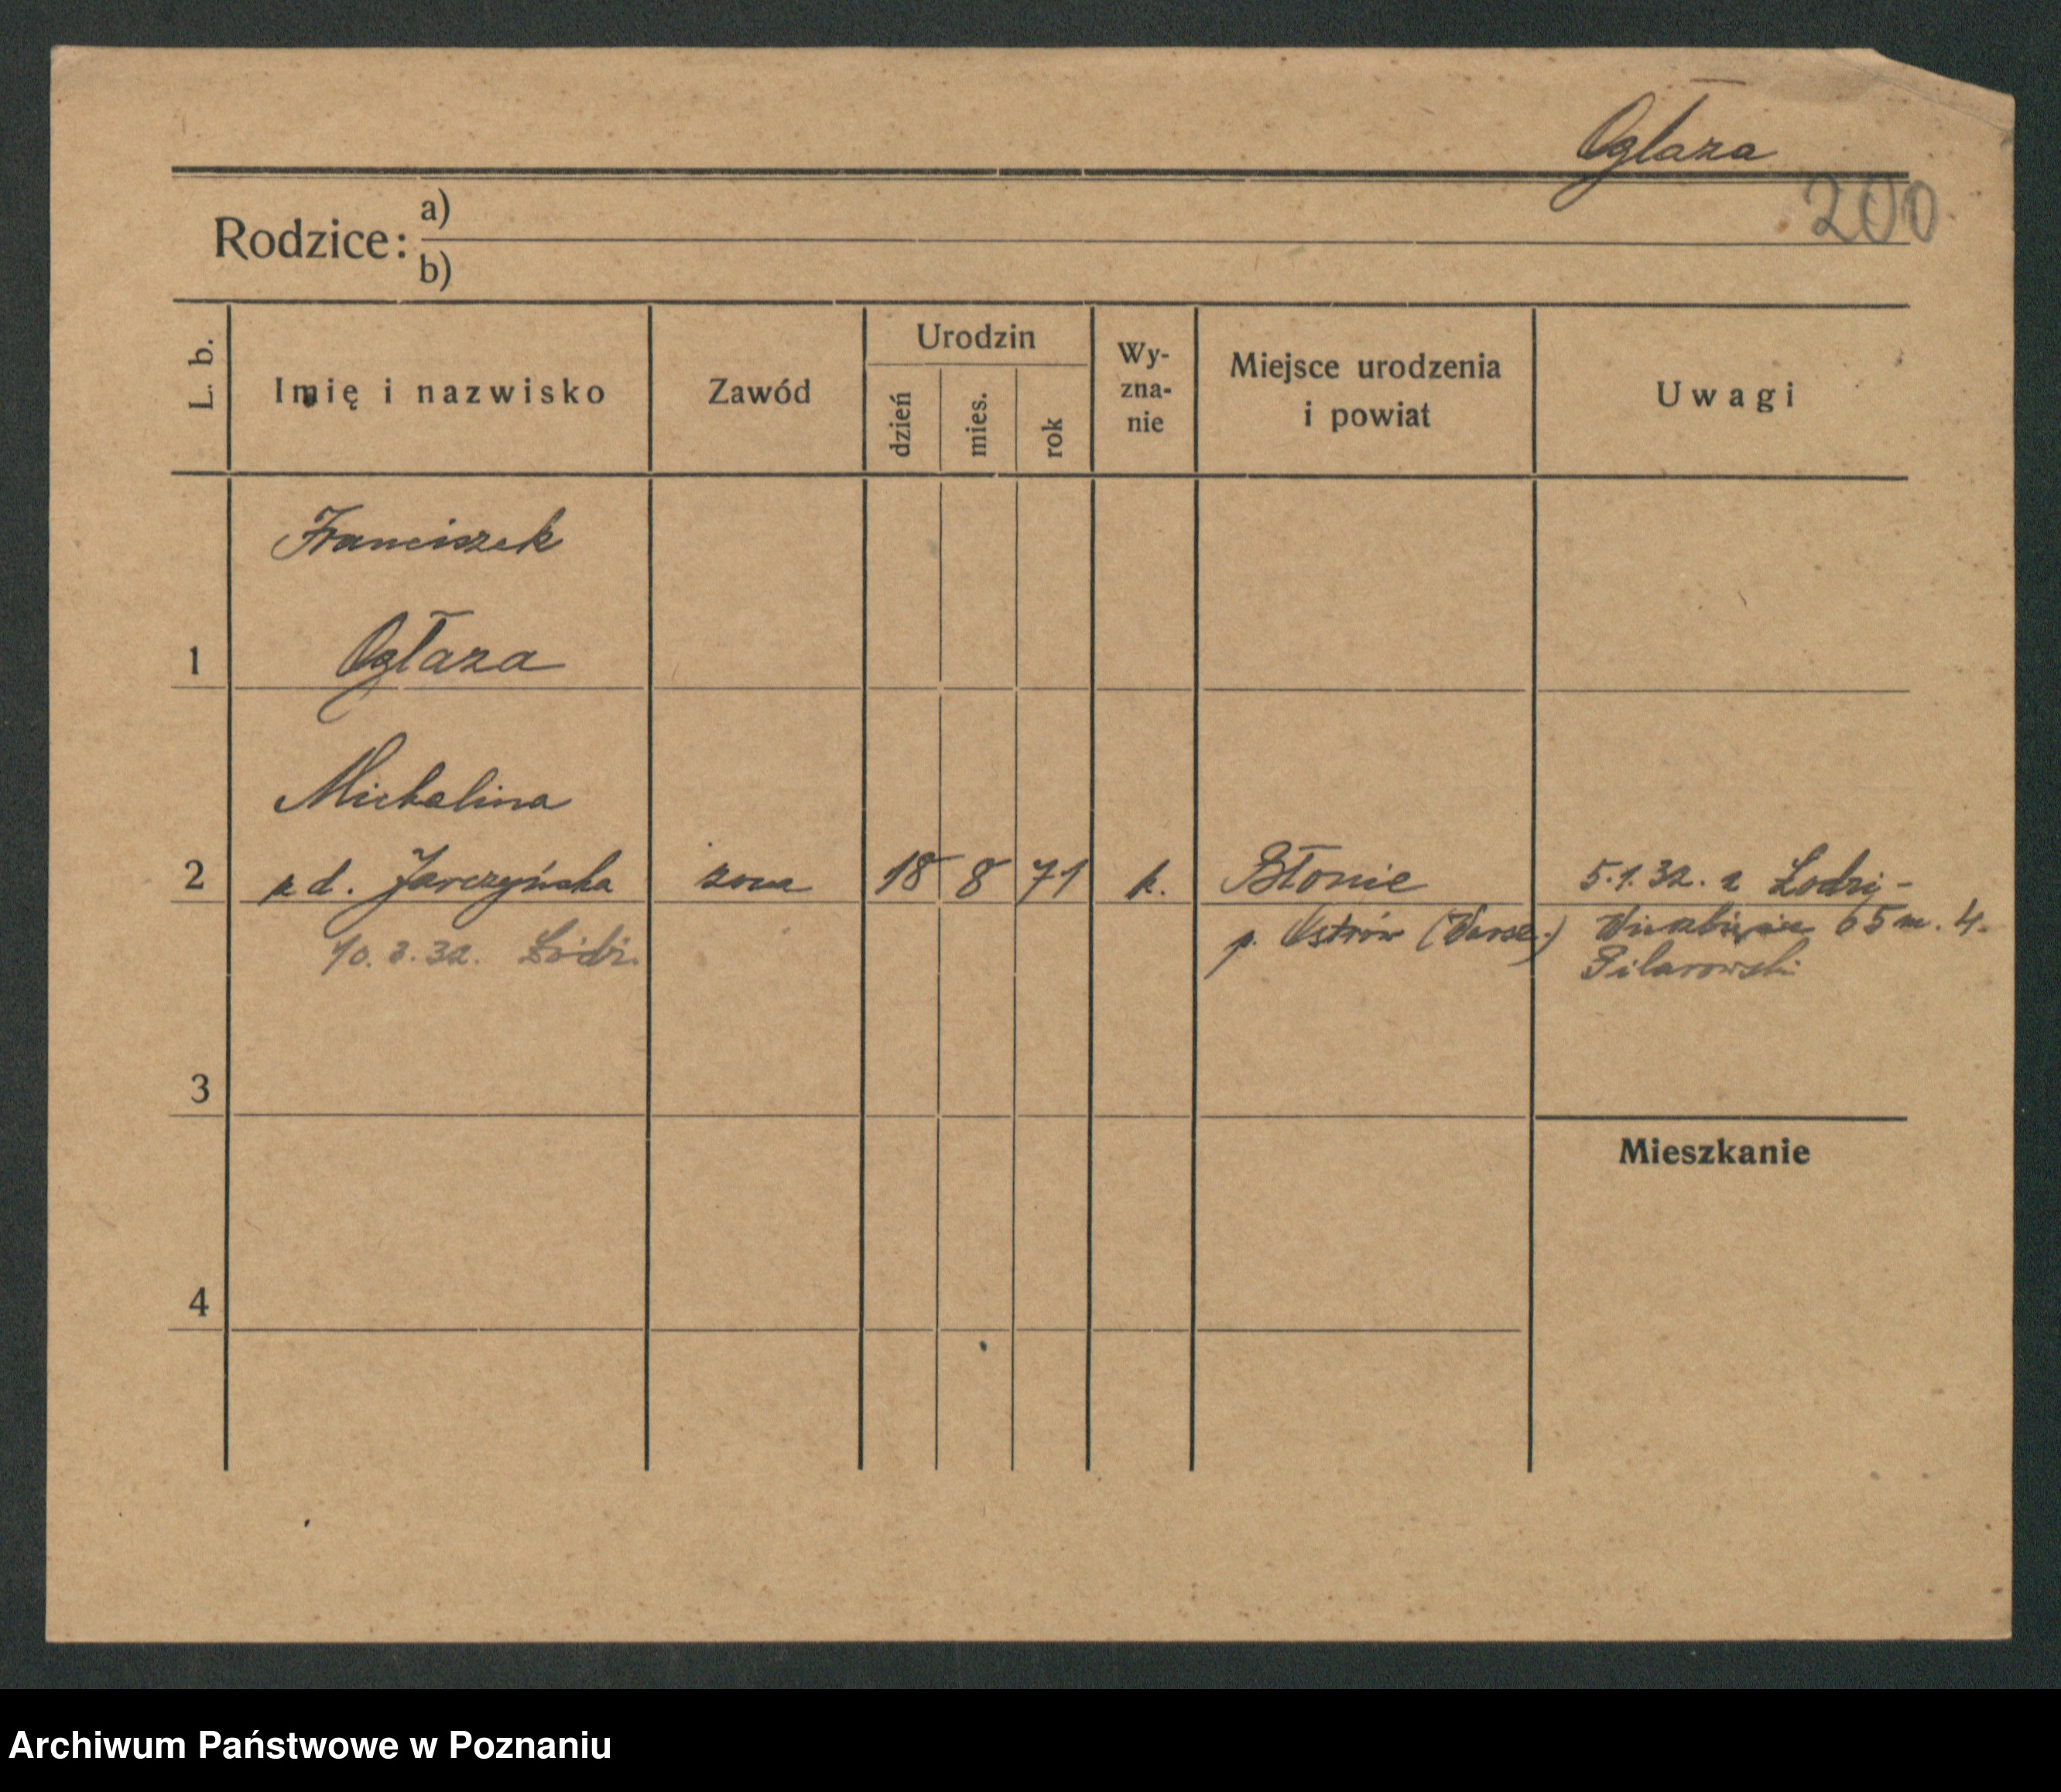 Ogłaza
200
Rodzice: a)
b)
L. b. Imię i nazwisko Zawód Urodzin dzień mies. rok Wy-zna-nie Miejsce urodzenia i powiat Uwagi
Franciszek
1 Ogłaza
Michalina
2 z d. Jarczyńska żona 18 8 71 k. Błonie 5.1.32. z Łodzi -
p. Ostrów (Warsz.) 65 m. 4.
10.3.32. Łódź. Pilarowski
3
Mieszkanie
4
Archiwum Państwowe w Poznaniu